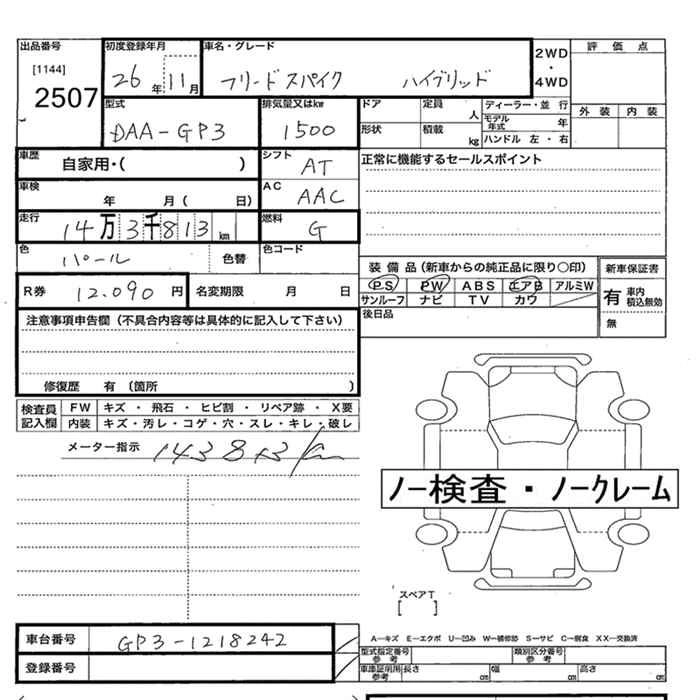 出品番号 初度登録年月 車名・グレード 2WD ・ 4WD 評価点
[1144] 26年 11月 フリードスパイク ハイブリッド
2507
外装 内装
型式 排気量又はkw ドア 定員 人 ディーラー・並行
DAA-GP3 1500 形状 積載 kg モデル年式 年
ハンドル 左・右
車歴 自家用・( ) シフト AT 正常に機能するセールスポイント
車検 年 月( 日) AC AAC
走行 14万3千813km 燃料 G
色 パール 色替 色コード
装備品(新車からの純正品に限り〇印) 新車保証書
R券 12,090円 名変期限 月 日 PS PW ABS エアB アルミW 有 車内積込無効
サンルーフ ナビ TV カワ
注意事項申告欄(不具合内容等は具体的に記入して下さい) 後日品 無
修復歴 有 (箇所 )
検査員記入欄 FW キズ・飛石・ヒビ割・リペア跡・X要
内装 キズ・汚レ・コゲ・穴・スレ・キレ・破レ
メーター指示 143813km
ノー検査・ノークレーム
スペアT
[ ]
車台番号 GP3-1218242 A—キズ E—エクボ U—凹み W—補修跡 S—サビ C—腐食 XX—交換済
型式指定番号 参考 類別区分番号 参考
登録番号 車庫証明用 参考 長さ cm 幅 cm 高さ cm